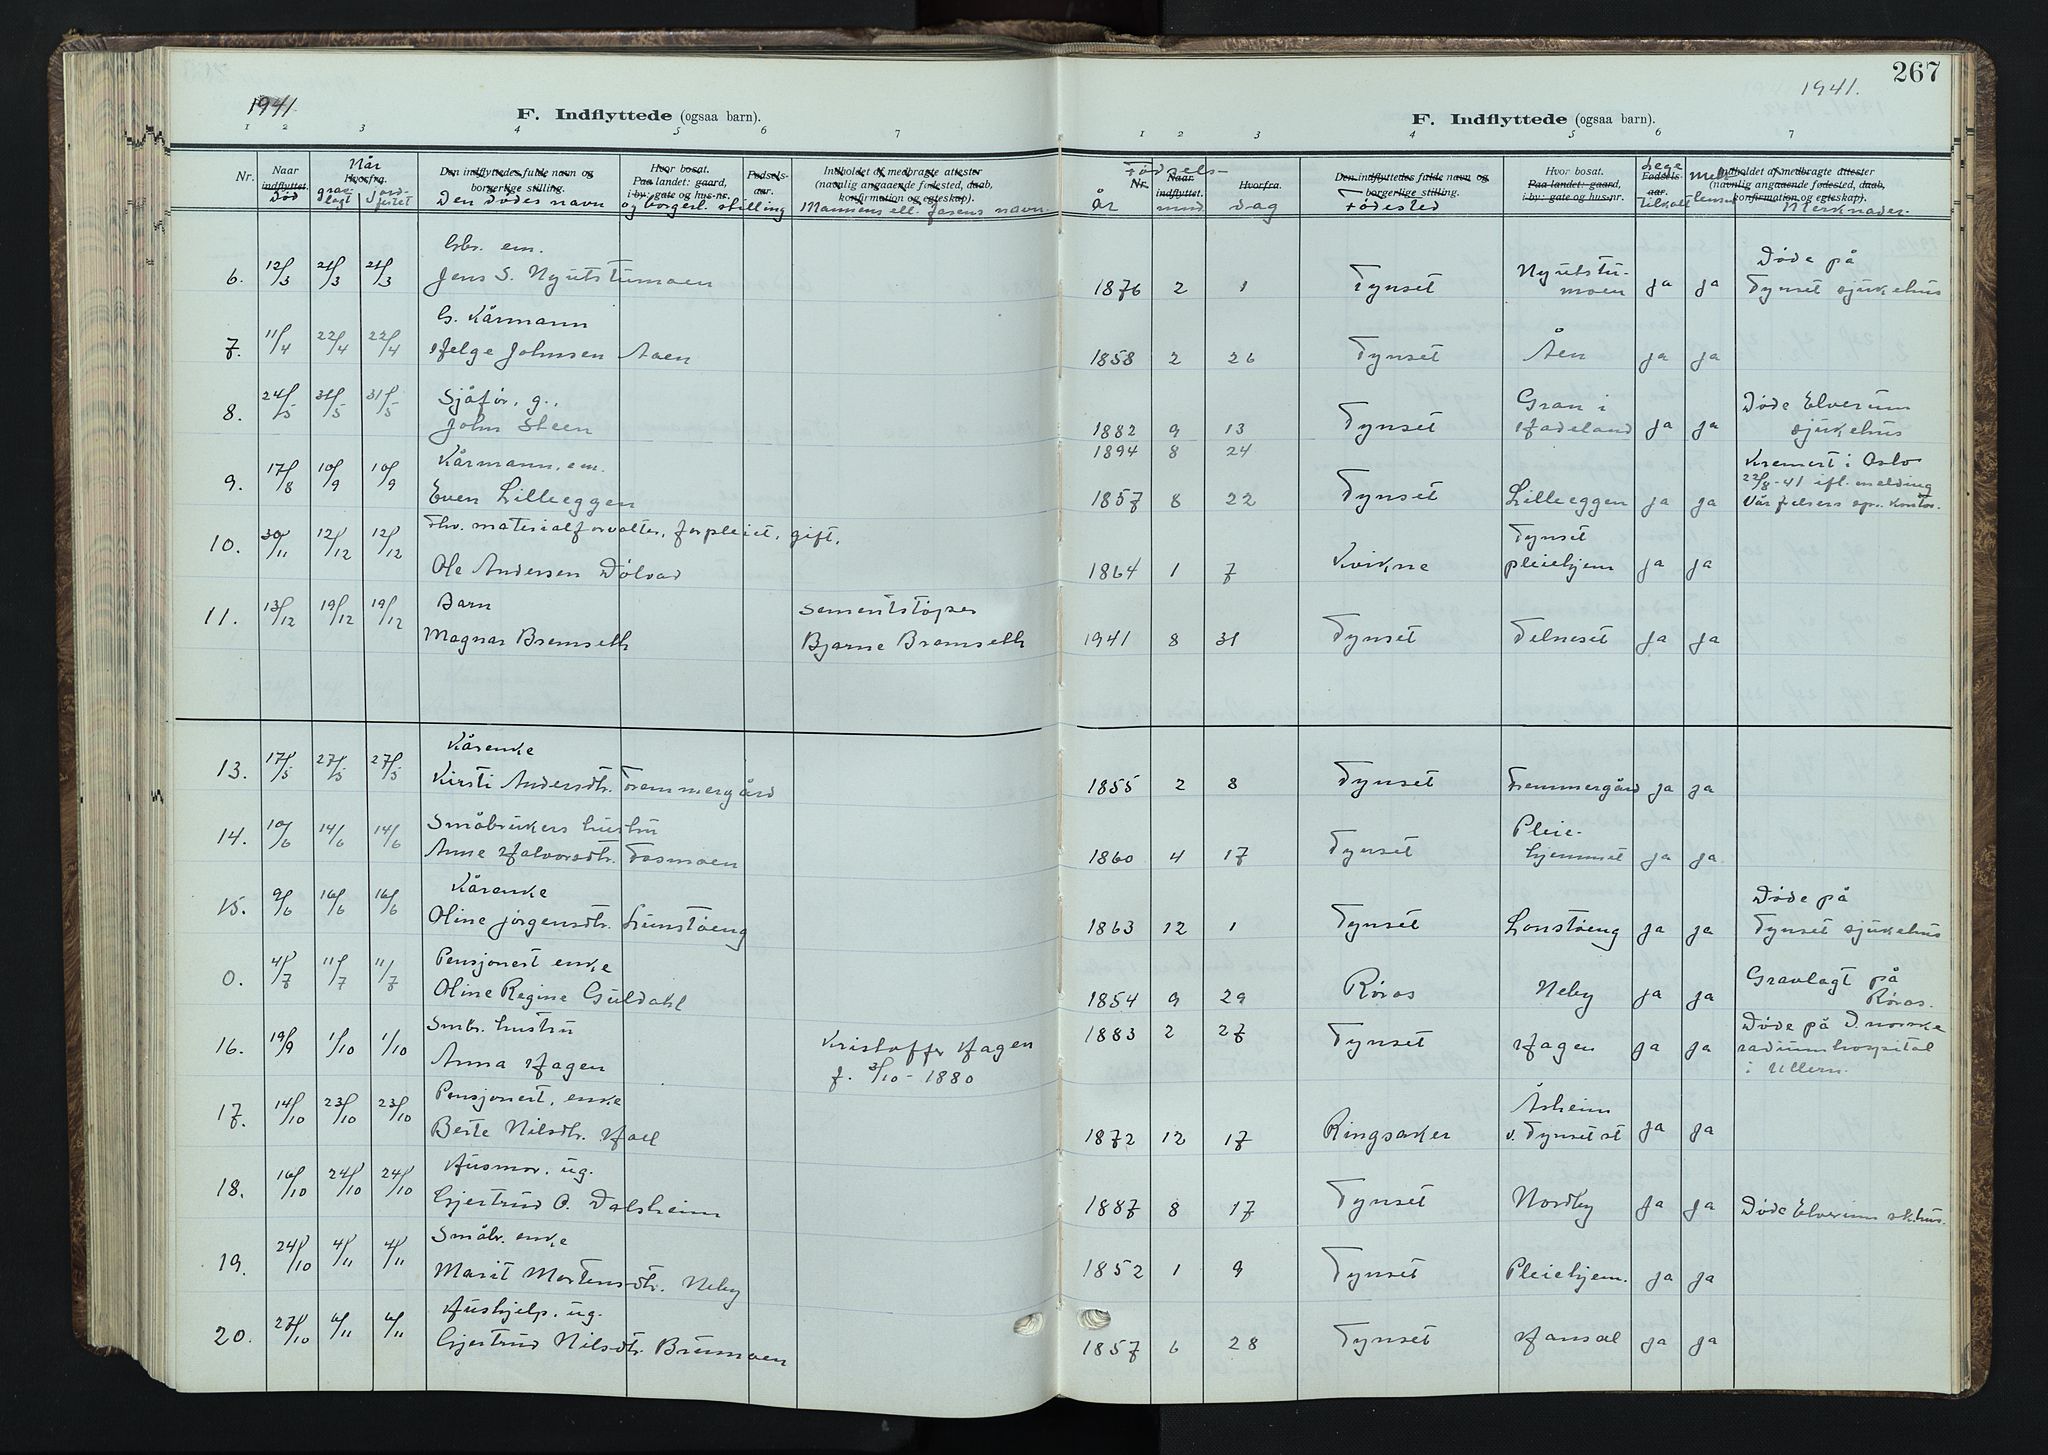 1941.
F. Indflyttede (ogsaa barn).
1 2 3 4 5 6 7
Nr.
Naar indflyttet. Død
Når Hvorfra. grav-lagt jord-festet
Den indflyttedes fulde navn og borgerlige stilling. Den Dødes navn
Hvor bosat. Paa landet: gaard, i by: gate og hus-nr. og borgerl. stilling
Fødsels-aar.
Indholdet af medbragte attester (navnlig angaaende fødested, daab, konfirmation og egteskap). Mannens ell. farens navn.
Gbr. em.
6. 12/3 21/3 21/3 Jens S. Nyutstumoen
G. Kårmann
7. 11/4 22/4 22/4 Helge Johnsen Aaen
Sjåfør, g.,
8. 24/5 31/5 31/5 John Steen
Kårmann, em.
9. 17/8 10/9 10/9 Even Lilleeggen
Fhv. materialforvalter, forpleiet, gift.
10. 30/11 12/12 12/12 Ole Andersen Dölvad
Barn sementstøper
11. 13/12 19/12 19/12 Magnar Bremseth Bjarne Bremseth
Kårenke
13. 17/5 27/5 27/5 Kirsti Andersdtr. Tremmergård
Småbrukers hustru
14. 10/6 14/6 14/6 Anne Halvorsdtr. Tosmoen
Kårenke
15. 9/6 16/6 16/6 Oline Jørgensdtr. Lunstøeng
Pensjonert enke
0. 4/7 11/7 11/7 Oline Regine Guldahl
Småbr. hustru Kristoffer Hagen
16. 19/9 1/10 1/10 Anna Hagen f. 3/10-1880
Pensjonert, enke
17. 14/10 23/10 23/10 Berte Nilsdtr. Hoel
Husmor, ug.
18. 16/10 24/10 24/10 Gjertrud O. Dalsheim
Småbr. enke
19. 24/10 4/11 4/11 Marit Mortensdtr. Neby
Hushjelp, ug.
20. 27/10 6/11 6/11 Gjertrud Nilsdtr. Brumoen
267
1941.
F. Indflyttede (ogsaa barn).
1 2 3 4 5 6 7
Fødsels-
Nr. år
Naar indflyttet. mnd
Hvorfra. dag
Den indflyttedes fulde navn og borgerlige stilling. Fødested
Hvor bosat. Paa landet: gaard, i by: gate og hus-nr.
Lege Fødsels-aar. tilkalt
Indholdet af medbragte attester (navnlig angaaende fødested, daab, konfirmation og egteskap). Merknader.
Nyutstu- Døde på
1876 2 1 Tynset moen ja ja Tynset sjukehus
1858 2 26 Tynset Åen ja ja
Gran i Døde Elverum
1882 9 13 Tynset Hadeland ja ja sjukehus
1894 8 24 Kremert i Oslo
22/8-41 ifl. melding
1857 8 22 Tynset Lilleeggen ja ja Vår frelsers opr. kontor.
Tynset
1864 1 7 Kvikne pleiehjem ja ja
1941 8 31 Tynset Telneset ja ja
1855 2 8 Tynset Tremmergård ja ja
Pleie-
1860 4 17 Tynset hjemmet ja ja
Døde på
1863 12 1 Tynset Lonstøeng ja ja Tynset sjukehus
Gravlagt på
1854 9 29 Røros Neby ja ja Røros.
Døde på D. norske
1883 2 27 Tynset Hagen ja ja radiumhospital
i Ullern.
Åsheim
1872 12 17 Ringsaker v. Tynset st ja ja
1887 8 17 Tynset Nordby ja ja Døde Elverum skhus.
1852 1 9 Tynset Pleiehjem. ja ja
1857 6 28 Tynset Hansal ja ja